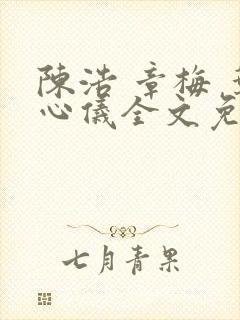 陳浩 章梅
心儀全文免
七月青果